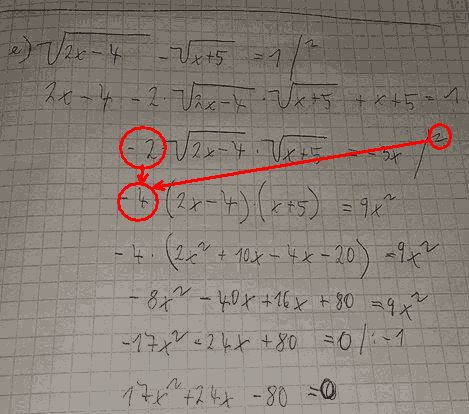 e) √(2x-4) - √(x+5) = 1 /²
2x-4 - 2·√(2x-4)·√(x+5) + x+5 = 1
-2 √(2x-4)·√(x+5) = -3x /²
-4·(2x-4)·(x+5) = 9x²
-4·(2x²+10x-4x-20) = 9x²
-8x²-40x+16x+80 = 9x²
-17x²-24x+80 = 0 /:-1
17x²+24x-80 = 0